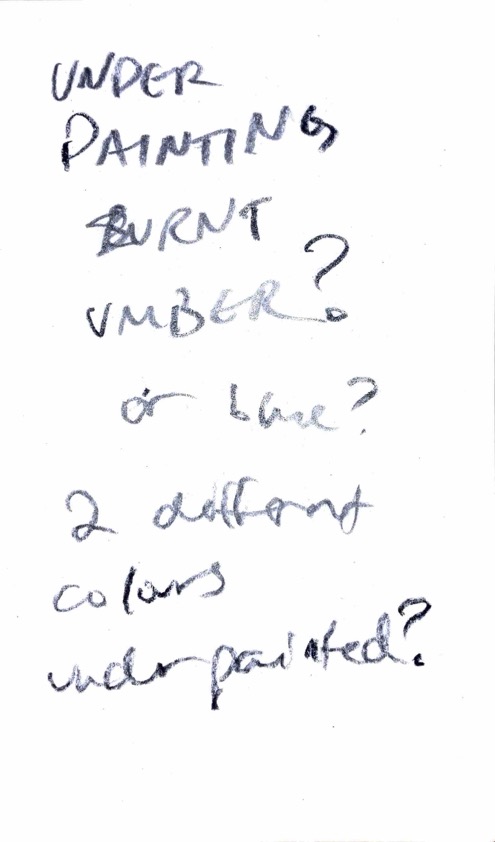 UNDER
PAINTING
BURNT
UMBER?
or blue?
2 different
colours
underpainted?